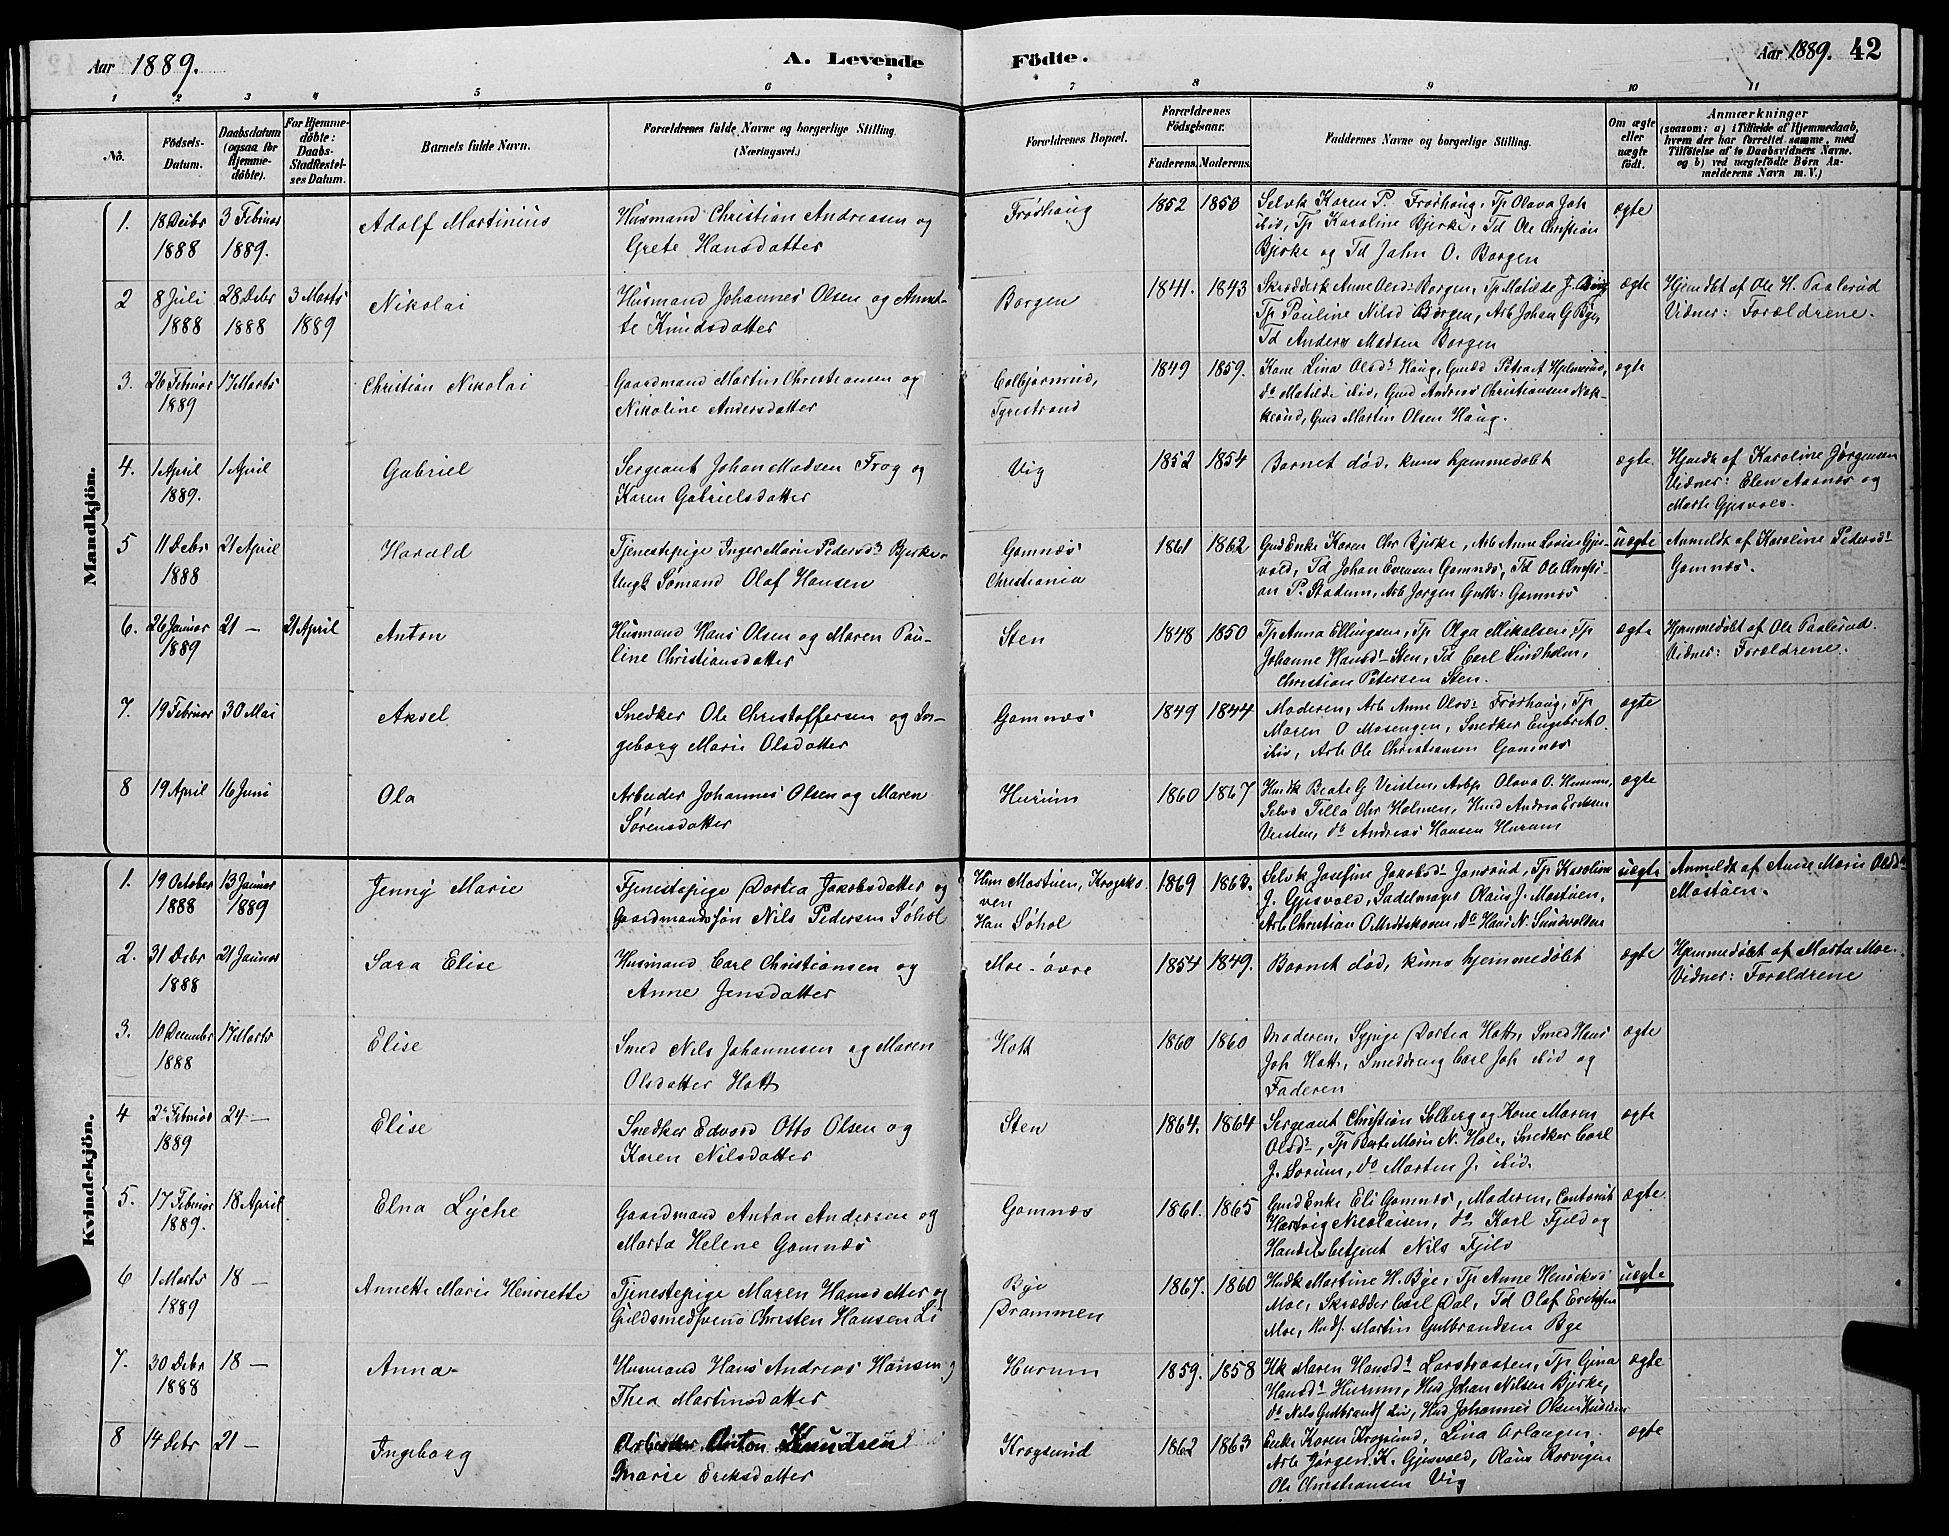 Aar 1889.
A. Levende
Födte.
Aar 1889. 42
1 2 3 4 5 6
7 8 9 10 11
No.
Födsels-
Datum.
Daabsdatum
(ogsaa for
Hjemme-
døbte).
For Hjemme-
døbte:
Daabs-
Stadfæstel-
ses Datum.
Barnets fulde Navn.
Forældrenes fulde Navne og borgerlige Stilling.
(Næringsvei.)
Forældrenes Bopæl.
Forældrenes
Födselsaar.
Faderens. Moderens.
Faddernes Navne og borgerlige Stilling.
Om ægte
eller
uægte
født.
Anmærkninger
(saasom: a) i Tilfælde af Hjemmedaab,
hvem der har forrettet samme, med
Tilføielse af to Daabsvidners Navne,
og b) ved uægtefødte Børn An-
melderens Navn m. V.)
Mandkjön.
1. 18 Debr 3 Februar
1888 1889.
Adolf Martinius
Husmand Christian Andreasen og
Grete Hansdatter
Frøshaug
1852 1853
Selvk Karen P. Frøshaug, Tp Olava Joh
ibid, Tp Karoline Bjerke, Td Ole Christian
Bjerke og Td John O. Borgen
ægte
2 8 Juli 28 Debr 3 Marts
1888 1888 1889
Nikolai
Husmand Johannes Olsen og Annet-
te Knudsdatter
Borgen
1841. 1843
Skrædderk Anne Olsd. Borgen, Tp Matilde J.
Tp Pauline Nilsd Borgen, Arb Johan G Bye,
Td Anders Madsen Borgen
ægte
Hjemdøbt af Ole H. Paalerud
Vidner: Forældrene.
3. 26 Februar 17 Marts
1889
Christian Nikolai
Gaardmand Martin Christiansen og
Nikoline Andersdatter
Colbjørnrud,
Tyrestrand
1849 1859.
Kone Lina Olsd. Haug, Gaard Petra A Hjelmerud,
do Matilde ibid, Gmd Andreas Christiansen Nak-
kerud, Gmd Martin Olsen Haug.
ægte
4. 1 April 1 April
1889.
Gabriel
Sergeant Johan Madsen Frog og
Karen Gabrielsdatter
Vig
1852 1854
Barnet død, kuns hjemmedøbt
ægte.
Hjemdt af Karoline Jørgensen
Vidner: Elen Aasnæs og
Marte Gjesvold.
5 11 Debr 21 April
1888
Harald
Tjenestepige Inger Marie Pedersdr Bjerke,
Ungk Sømand Olaf Hansen
Gomnæs
Christiania
1861 1862
Gmd Enke Karen Chr Bjerke, Arb Anne Lovise Gjes-
vold, Td Johan Evensen Gomnæs, Td Ole Christi-
an P. Stadum, Arb Jørgen Gulbr. Gomnæs
uægte
Anmeldt af Karoline Pedersdr
Gomnæs.
6. 26 Januar 21 — 21 April
1889
Anton
Husmand Hans Olsen og Maren Pau-
line Christiansdatter
Sten
1848 1850
Tp Anna Ellingsen, Tp Olga Mikalsen, Tp
Johanne Hansd. Sten, Td Carl Lindholm,
Christian Petersen Sten.
ægte
Hjemmedøbt af Ole Paalerud.
Vidner: Forældrene.
7. 19 Februar 30 Mai
Aksel
Snedker Ole Christoffersen og In-
geborg Marie Olsdatter
Gomnæs
1849 1844
Moderen, Arb Anne Olsd. Frøshaug, Tp
Maren O Mosengen, Snedker Engebret O.
ibid, Arb Ole Christiansen Gomnæs
ægte
8 19 April 16 Juni
Ola
Arbeider Johannes Olsen og Maren
Sørensdatter
Hurum
1860 1867
Husk Beate G Veisten, Arbp Olava O. Hurum,
Selvk Tilla Chr Holmen, Hmd Andrea Eriksen
Veisten, do Andreas Hansen Hurum
ægte
Kvindekjön.
1. 19 October 13 Januar
1888 1889
Jenny Marie
Tjenestepige Dortea Jakobsdatter og
Gaardmandssøn Nils Pedersen Søhol
Hun Mostuen, Krogsko-
ven
Han Søhol
1869 1863.
Selvk Josefine Jakobsd. Jonsrud, Tp Karoline
J. Gjesvold, Sadelmager Olaus J. Mostuen,
Arb Christian O Midtskoven, do Hans N. Sundvolden
uægte
Anmeldt af Anne Marie Olsdr
Mostuen.
2. 31 Debr 21 Januar
1888
Sara Elise
Husmand Carl Christiansen og
Anne Jensdatter
Moe-øvre
1854 1849.
Barnet død, kuns hjemmedøbt
ægte
Hjemmedøbt af Marta Moe.
Vidner: Forældrene
3. 10 December 17 Marts
1888
Elise
Smed Nils Johannesen og Maren
Olsdatter Hott
Hott
1860 1860
Moderen, Sypige Dortea Hott, Smed Hans
Joh Hott, Smeddreng Carl Joh ibid og
Faderen
ægte
4 2 Februar 24 —
1889
Elise
Snedker Edvard Otto Olsen og
Karen Nilsdatter
Sten
1864. 1864
Sergeant Christian Solberg og Kone Maren
Olsdr, Tp Berte Marie N. Hole, Snedker Carl
J. Lorum, do Morten J. ibid.
ægte
5. 17 Februar 18 April
1889.
Elna Lyche
Gaardmand Anton Andersen og
Marta Helene Gomnæs
Gomnæs
1861. 1865
Gmd Enke Eli Gomnæs, Moderen, Contorist
Hartvig Nicolaisen, do Karl Fjeld og
Handelsbetjent Nils Fjeld
ægte
6 1 Marts 18 —
1889
Annette Marie Henriette
Tjenestepige Maren Hansdatter og
Guldsmedsvend Christen Hansen Li
Bye
Drammen
1867. 1860
Husk Martine H. Bye, Tp Anne Henriksd
Moe, Skrædder Carl Dal, Td Olaf Eriksen
Moe, Husf. Martin Gulbrandsen Bye
uægte
7. 30 Debr 18 —
1888
Anna
Husmand Hans Andreas Hansen og
Thea Martinsdatter
Hurum
1859. 1858
Hk Maren Hansdr Larstroften, Tp Gina
Hansdr Hurum, Hmd Johan Nilsen Bjerke,
do Nils Gulbrands ibid, Hmd Johannes Olsen Hurum
ægte
8 14 Debr 21 —
Ingeborg
Arbeider Anton Knudsen
Marie Eriksdatter
Krogsund
1862 1863
Enke Karen Krogsund, Lina
Arb Jørgen K. Gjesvold, Olaus Rorvigen
Ole Christiansen Vig
ægte